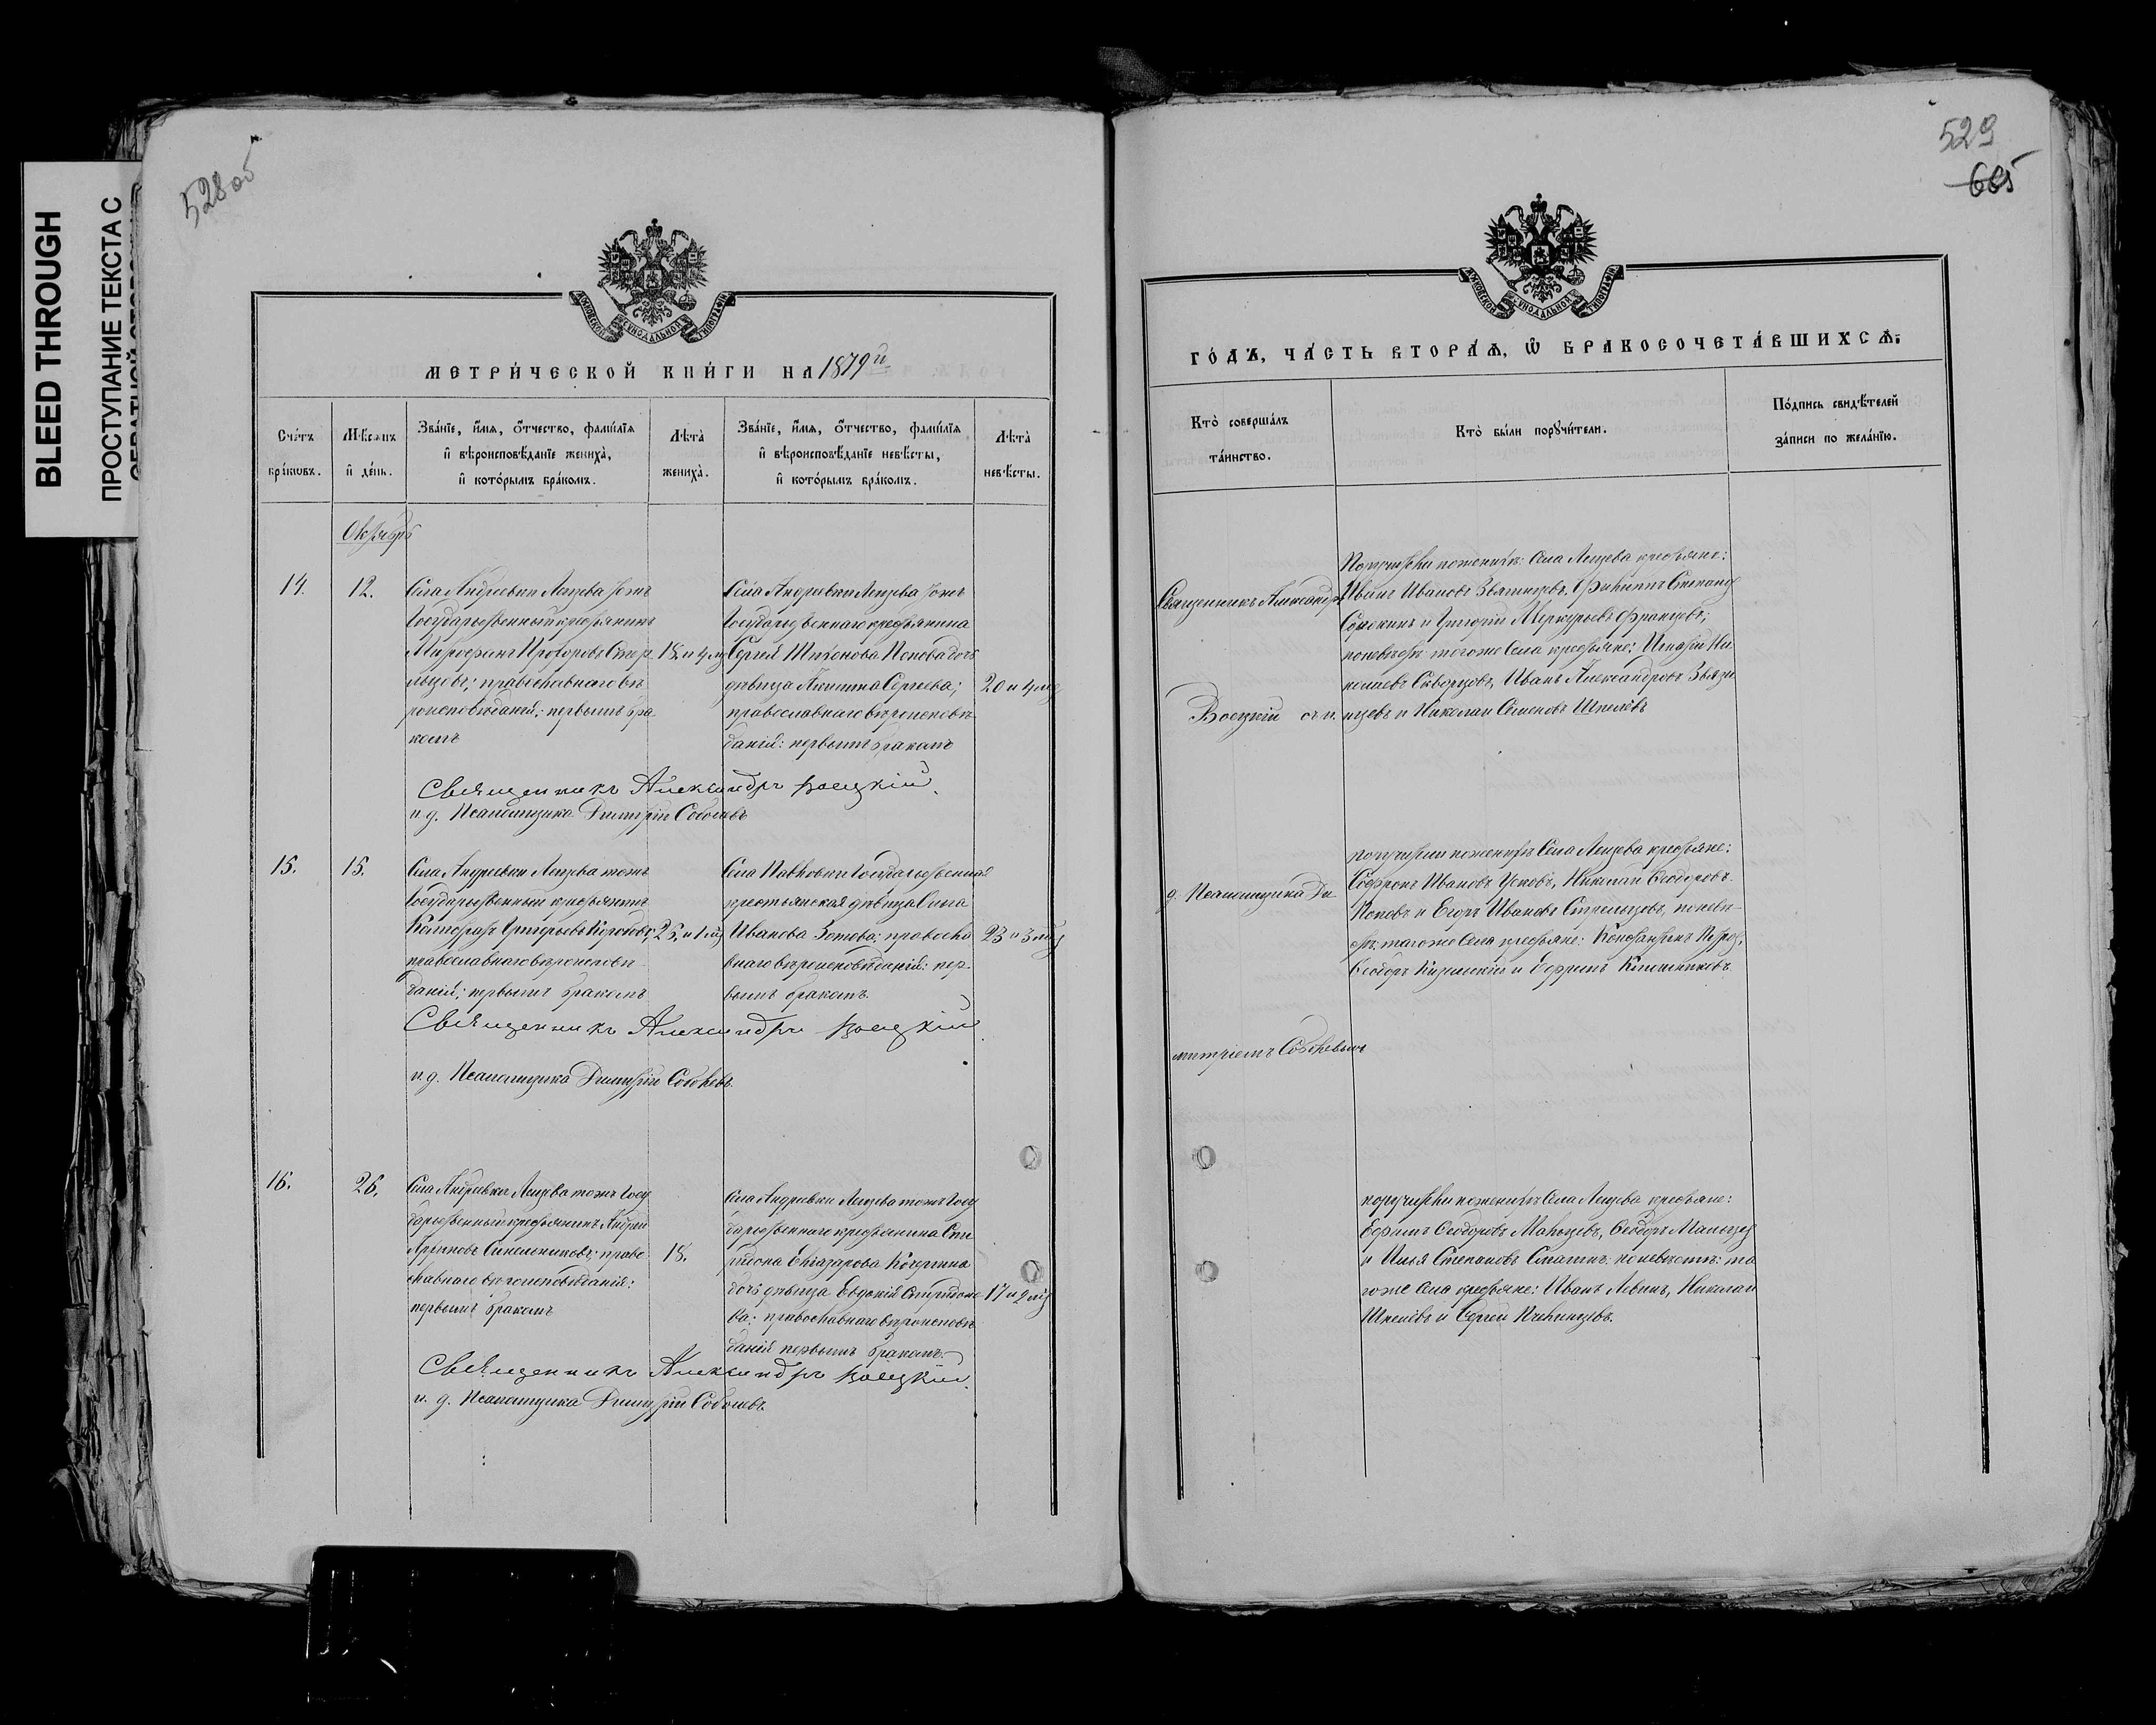 BLEED THROUGH
ПРОСТУПАНИЕ ТЕКСТА С
528 об
МЕТРИ́ЧЕСКОЙ КНИ́ГИ НА 1879 й
Сче́тъ бра́ковъ.
Мѣсѧцъ и҆ де́нь.
Зва́нїе, и҆́мѧ, ѻ҆́тчество, фами́лїѧ и҆ вѣроисповѣ́данїе жениха̀, и҆ кото́рымъ бра́комъ.
Лѣта̀ жениха̀.
Зва́нїе, и҆́мѧ, ѻ҆́тчество, фами́лїѧ и҆ вѣроисповѣ́данїе невѣ́сты, и҆ кото́рымъ бра́комъ.
Лѣта̀ невѣ́сты.
Октябрь
14.
12.
Села Андреевки Лещева тожъ
Государственный крестьянинъ
Митрофанъ Прохоровъ
православнаго вѣ
роисповѣданій; первымъ бра
комъ
18. и 4 мѣ
Села Андреевки Лещева тожъ
Государственнаго крестьянина
Сергея Попова дочь
дѣвица Сергеева;
православнаго вѣроисповѣ
даній: первымъ бракомъ
20 и 4 мѣ
Священникъ Александръ Воецкій.
и. д. Псаломщика Димитрій Соболевъ
15.
15.
Села Андреевки Лещева тожъ
Государственный крестьянинъ
Григорьевъ
православнаго вѣроисповѣ
даній; первымъ бракомъ
25. и 1 мѣ
Села Павловки Государственная
крестьянская дѣвица
Иванова правосла
внаго вѣроисповѣданій: пер
вымъ бракомъ.
23 и 3 мѣ
Священникъ Александръ Воецкій
и. д. Псаломщика Димитрій Соболевъ.
16.
26.
Села Андреевки Лещева тожъ Госу
дарственный крестьянинъ Андрей
Синельниковъ; право
славнаго вѣроисповѣданій:
первымъ бракомъ
18.
Села Андреевки Лещева тожъ Госу
дарственнаго крестьянина Спи
ридона
дочь дѣвица Евдокія Спиридоно
ва: православнаго вѣроисповѣ
даній первымъ бракомъ.
17 и 2 мѣ
Священникъ Александръ Воецкій.
и. д. Псаломщика Димитрій Соболевъ.
529
605
ГО́ДЪ, ЧА́СТЬ ВТОРА́Ѧ, Ѽ БРАКОСОЧЕТА́ВШИХСѦ:
Кто̀ соверша́лъ та́инство.
Кто̀ бы́ли порꙋчи́тели.
По́дпись свидѣ́телей за́писи по жела́нїю.
Священникъ Александръ
Воецкій съ и.
Поручители по женихѣ: Села Лещева крестьяне:
Иванъ Ивановъ Звягинцевъ, Филиппъ Степановъ
Сорокинъ и Григорій Меркурьевъ
по невѣстѣ: тогоже Села крестьяне: Игнатій Ни
колаевъ Скворцовъ, Иванъ Александровъ Звяги
нцевъ и Николай Семеновъ Шпилевъ
д. Псаломщика Ди
митріемъ Соболевымъ
поручители по женихѣ Села Лещева крестьяне:
Софронъ Ивановъ Усковъ, Николай Ѳеодоровъ
Поповъ и Егоръ Ивановъ Стрельцовъ, по невѣ
стѣ: тогоже Села крестьяне: Константинъ
Ѳеодоръ и Ефремъ
поручители по женихѣ Села Лещева крестьяне:
Ефимъ Ѳеодоровъ Мальцевъ, Ѳеодоръ Мальцевъ
и Илья Степановъ по невѣстѣ: то
гоже Села крестьяне: Иванъ Левинъ, Николай
Шпилевъ и Сергей Пчелинцевъ.